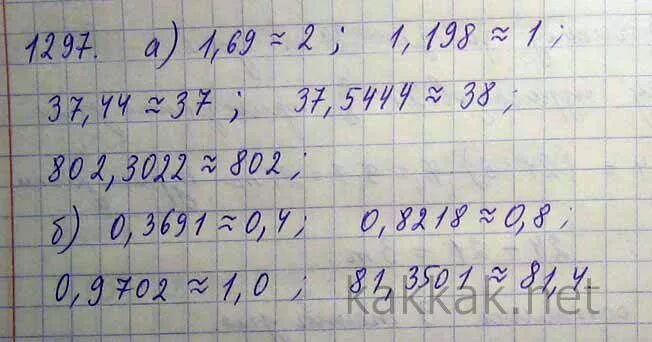 1297. а) 1,69 ≈ 2 ; 1,198 ≈ 1 ;
37,44 ≈ 37 ; 37,5444 ≈ 38 ;
802,3022 ≈ 802 ;
б) 0,3691 ≈ 0,4 ; 0,8218 ≈ 0,8 ;
0,9702 ≈ 1,0 ; 81,3501 ≈ 81,4.
kakkak.net